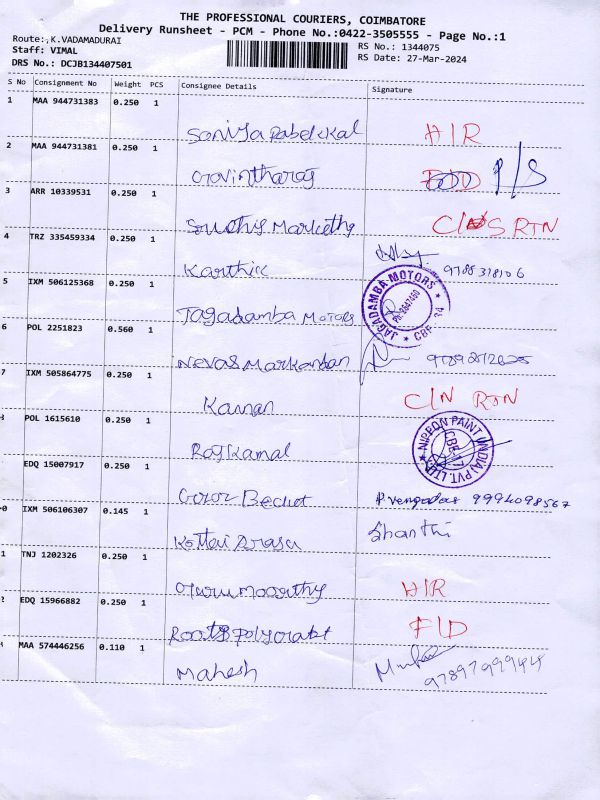 THE PROFESSIONAL COURIERS, COIMBATORE
Delivery Runsheet - PCM - Phone No.:0422-3505555 - Page No.:1
Route:,K.VADAMADURAI
Staff: VIMAL
DRS No.: DCJB134407501
RS No.: 1344075
RS Date: 27-Mar-2024
S No Consignment No Weight PCS Consignee Details Signature
1 MAA 944731383 0.250 1
Soniya Pabekkal H/R
2 MAA 944731381 0.250 1
Govintharaj P/S
3 ARR 10339531 0.250 1
Sruthy Markethg C/N S RTN
4 TRZ 335459334 0.250 1
Karthik 9788318106
5 IXM 506125368 0.250 1
Jagadamba Motors
JAGADAMBA MOTORS
CBE
6 POL 2251823 0.560 1
7 IXM 505864775 0.250 1
Kannan C/N RTN
POL 1615610 0.250 1
Raj Kamal
NIPPON PAINT (INDIA) PVT. LTD.
EDQ 15007917 0.250 1
9994098567
0 IXM 506106307 0.145 1
Kottai Arasu Shanthi
1 TNJ 1202326 0.250 1
Gurumoorthy H/R
EDQ 15966882 0.250 1
F/D
MAA 574446256 0.110 1
Mahesh